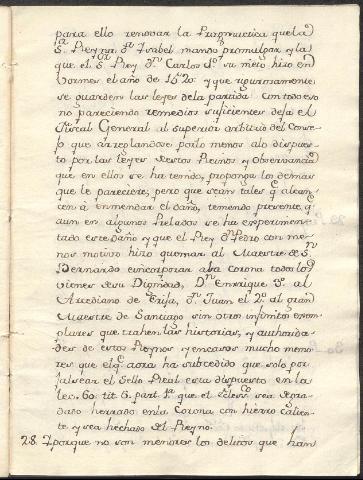 para ello renovar la Pragmatica que la
S.ra Reyna D.a Isabel mandò promulgar, y la
que el S.r Rey D.n Carlos 1.o su nieto hizo en
Bormes el año de 1520 y que rigurosamente
se guarden las leyes de la partida. Con todo eso
no pareciendo remedios suficientes deja el
Fiscal General al superior arbitrio del Conse-
jo que arreglandose por lo menos alo dispues-
to por las leyes destos Reinos y observancia
que en ellos se ha tenido, proponga lo demas
que le pareciere, pero que sean tales q.e alcan-
cen â enmendar el daño, teniendo presente, q.e
aun en algunos Prelados se ha experimen-
tado este daño y que el Rey D.n Pedro con me-
nos motivo hizo quemar al Maestre de S.n
Bernardo è incorporar ala Corona todos los
vienes de su Dignidad, D.n Enrique 3.o al
Arcediano de Ecija, D.n Juan el 2.o al gran
Maestre de Santiago sin otros infinitos exem-
plares que trahen las historias, y authorida-
des de estos Reynos y en casos mucho meno-
res que el q.e aora ha subcedido que solo por
falsear el Sello Real esta dispuesto en la
lex. 60. tit. 6. part. 1.a que el Clerigo sea degra-
dado herrado en la Corona con hierro calien-
te y sea hechado del Reyno.
28. Y porque no son menores los delitos que han